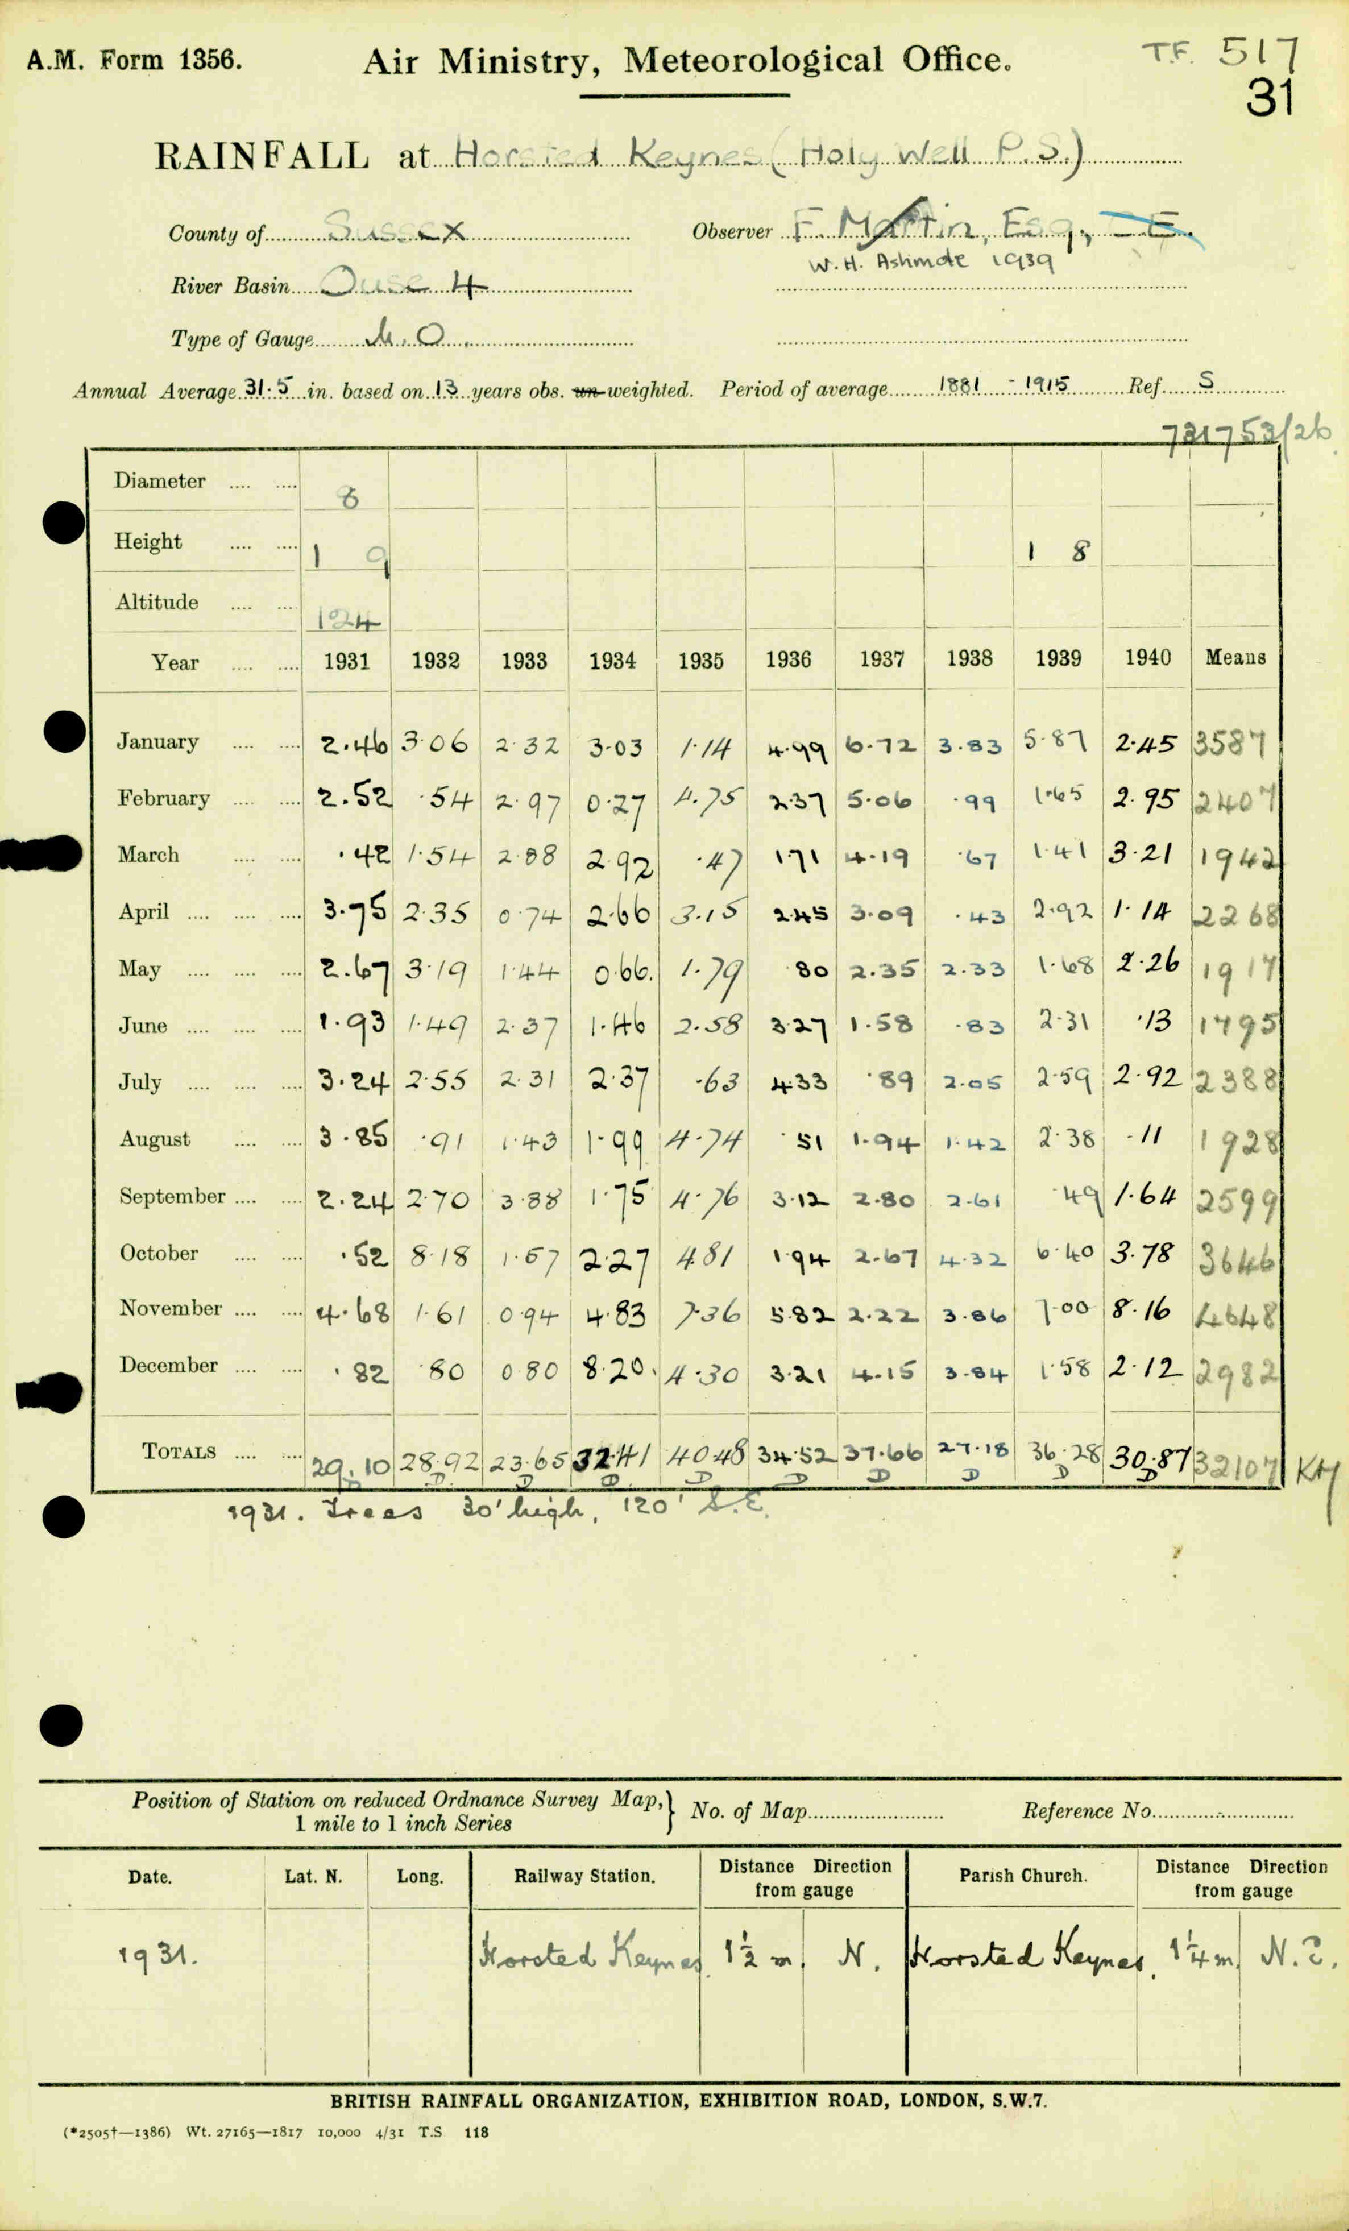 A.M. Form 1356. Air Ministry, Meteorological Office. T.F. 517
31
RAINFALL at Horsted Keynes (Holy Well P.S.)
County of Sussex Observer F. Martin, Esq., C.E.
W. H. Ashmole 1939
River Basin Ouse 4
Type of Gauge M.O.
Annual Average 31.5 in. based on 13 years obs. un-weighted. Period of average 1881 - 1915 Ref. S
731753/26
Diameter 8
Height 1 9 1 8
Altitude 124
Year 1931 1932 1933 1934 1935 1936 1937 1938 1939 1940 Means
January 2.46 3.06 2.32 3.03 1.14 4.99 6.72 3.83 5.87 2.45 3587
February 2.52 .54 2.97 0.27 4.75 2.37 5.06 .99 1.65 2.95 2407
March .42 1.54 2.88 2.92 .47 1.71 4.19 .67 1.41 3.21 1942
April 3.75 2.35 0.74 2.66 3.15 2.45 3.09 .43 2.92 1.14 2268
May 2.67 3.19 1.44 0.66 1.79 .80 2.35 2.33 1.68 2.26 1917
June 1.93 1.49 2.37 1.46 2.58 3.27 1.58 .83 2.31 .13 1795
July 3.24 2.55 2.31 2.37 .63 4.33 .89 2.05 2.59 2.92 2388
August 3.85 .91 1.43 1.99 4.74 .51 1.94 1.42 2.38 .11 1928
September 2.24 2.70 3.88 1.75 4.76 3.12 2.80 2.61 .49 1.64 2599
October .52 8.18 1.57 2.27 4.81 1.94 2.67 4.32 6.40 3.78 3646
November 4.68 1.61 0.94 4.83 7.36 5.82 2.22 3.86 7.00 8.16 4648
December .82 .80 0.80 8.20 4.30 3.21 4.15 3.84 1.58 2.12 2982
TOTALS 29.10 28.92 23.65 32.41 40.48 34.52 37.66 27.18 36.28 30.87 32107 KH
D D D D D D D D D D
1931. Trees 30' high, 120' S.E.
Position of Station on reduced Ordnance Survey Map, } No. of Map Reference No.
1 mile to 1 inch Series
Date. Lat. N. Long. Railway Station. Distance Direction from gauge Parish Church. Distance Direction from gauge
1931. Horsted Keynes. 1½ m. N. Horsted Keynes. 1¼ m N.E.
BRITISH RAINFALL ORGANIZATION, EXHIBITION ROAD, LONDON, S.W.7.
(*2505†—1386) Wt. 27165—1817 10,000 4/31 T.S 118